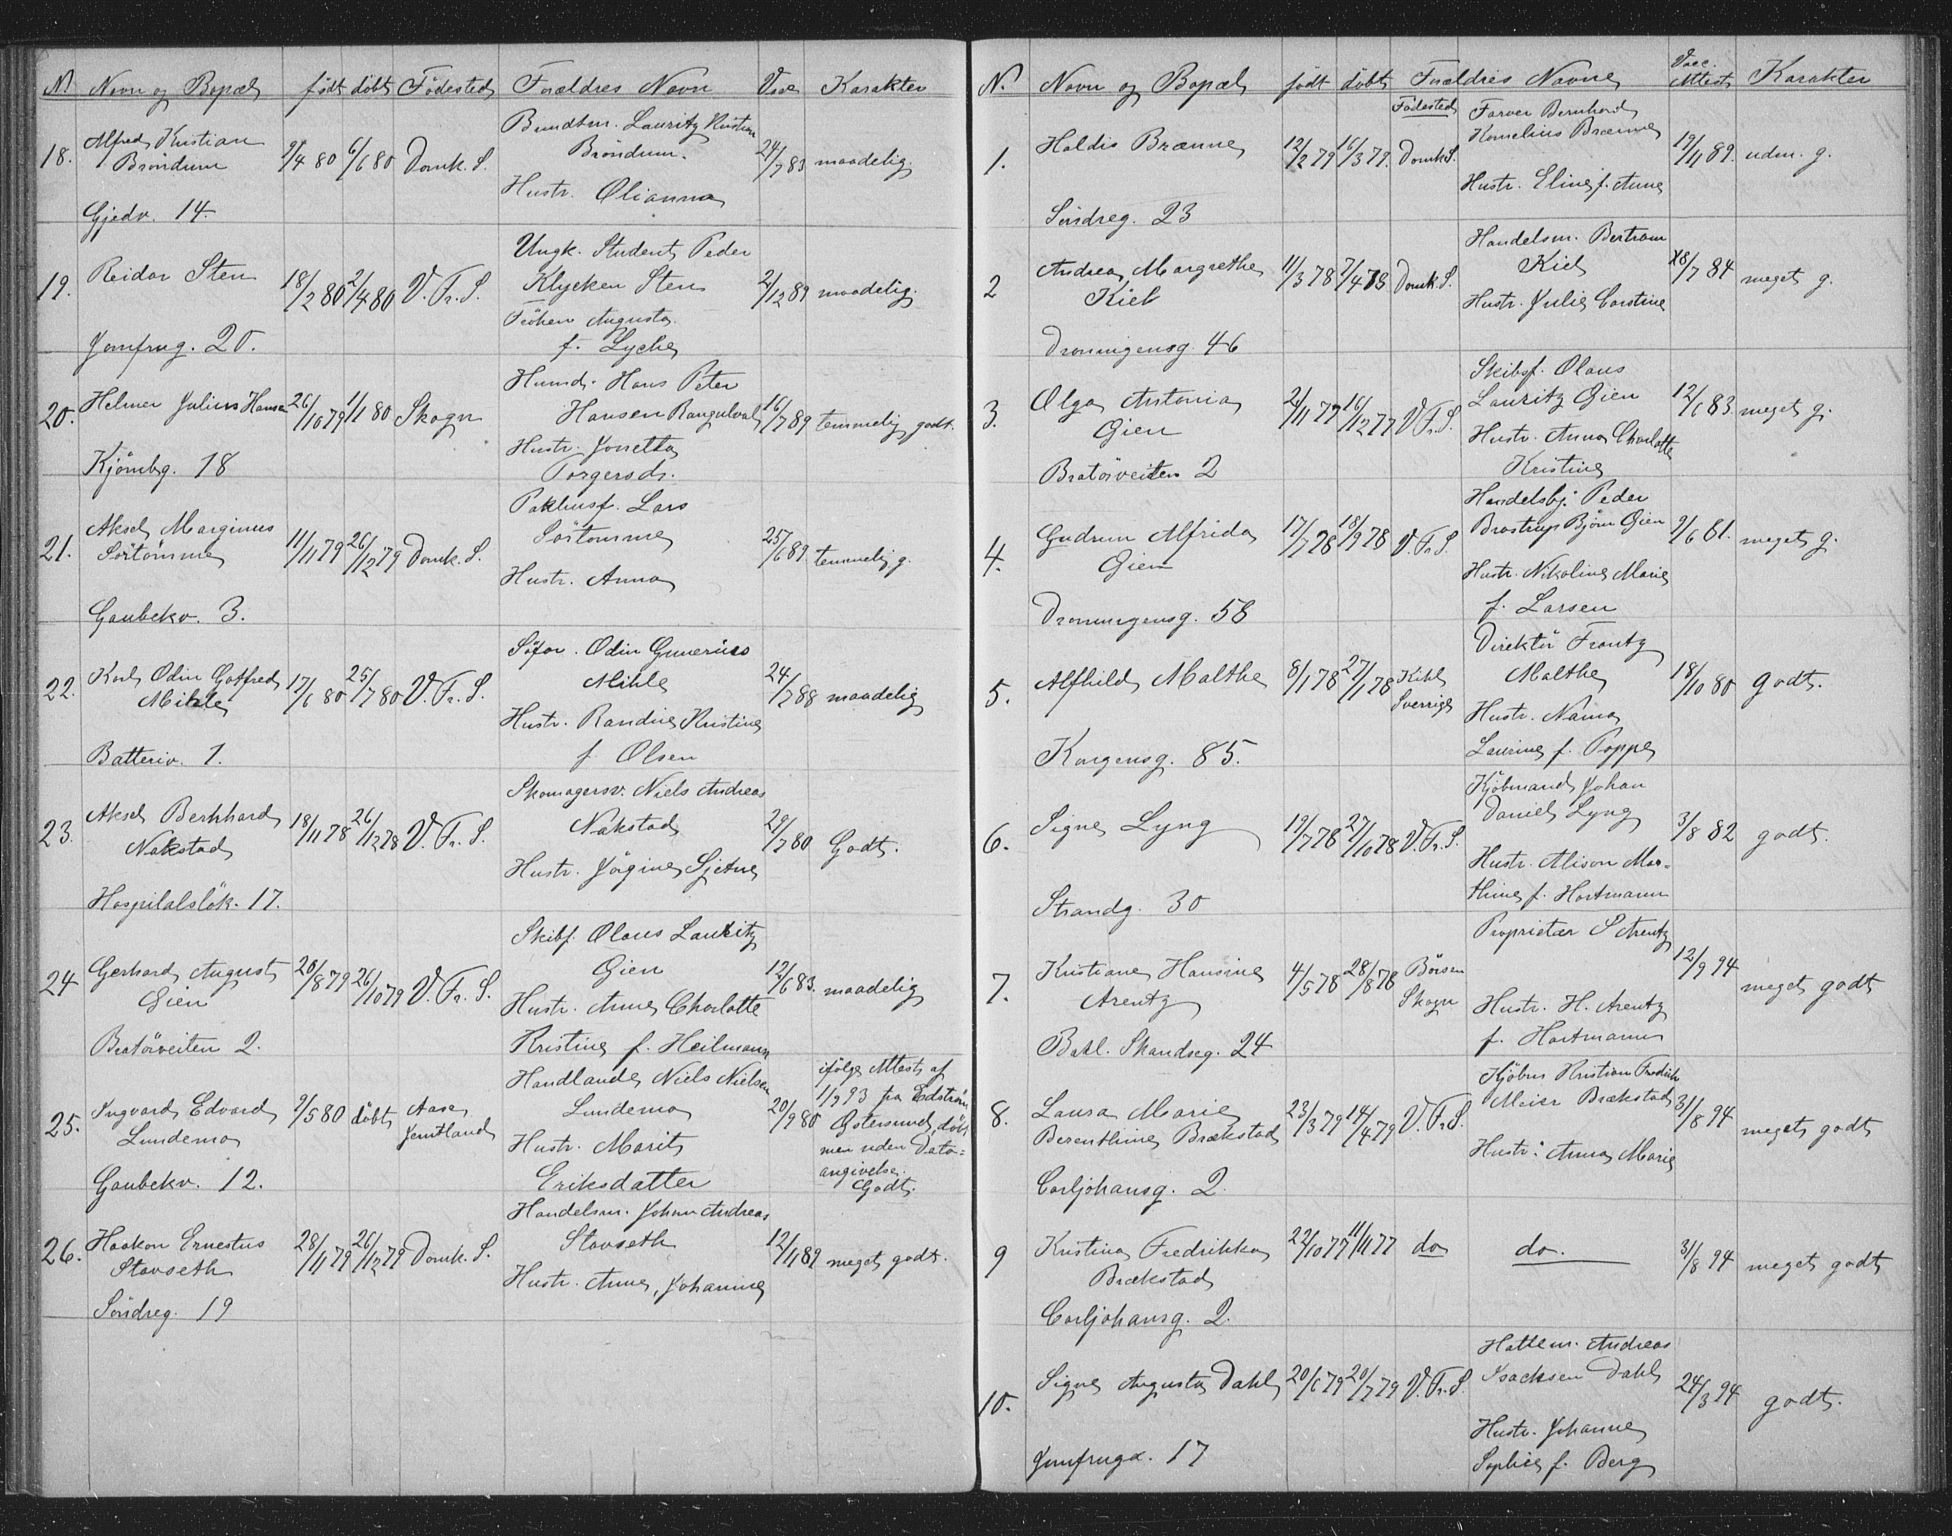 N. Navn og Bopæl født döbt Födested Forældres Navn Vac Karakter
18. Alfred Kristian Bröndum 9/4 80 6/6 80 Domk. S. Bundtm. Lauritz Kristian Bröndum. 24/7 83 maadelig.
Hustr. Olianna
Gjedv. 14.
19. Reidar Sten 18/2 80 2/4 80 V. Fr. S. Ungk. Student Peder Klycken Sten 2/12 89 maadelig.
Fröken Augusta f. Lycke
Jomfrug. 20.
20. Helmer Julius Hansen 26/10 79 1/1 80 Skogn Hansen Hans Peter Hansen 16/7 89 temmelig godt.
Hustr. Jonetta Torgersdr.
Kjömbg. 18
21. Aksel Marginius Sörtömme 11/11 79 26/12 79 Domk. S. Pakhusf. Lars Sörtömme 25/6 89. temmelig g.
Hustr. Anna
Gaubekv. 3.
22. Karl Odin Gotfred Mihle 17/6 80 25/7 80 V. Fr. S. Odin Gunerius Mihle 24/7 88 maadelig
Hustr. Randine Kristine f. Olsen
Batteriv. 1.
23. Aksel Bernhard Nakstad 18/11 78 26/12 78 V. Fr. S. Skomagersv. Niels Andreas Nakstad 29/7 80 Godt.
Hustr. Jörgine Sjetne
Hospitalslök. 17.
24 Gerhard August Gien 20/8 79 26/10 79 V. Fr. S. Skibf. Olaus Lauritz Gien 12/6 83. maadelig
Hustr. Anne Charlotte Kristine f. Heilmann
Bratörveiten 2.
25. Ingvard Edvard Lundemo 9/5 80 döbt Aase Jemtland Handlande Niels Nielsen Lundemo 20/9 80 ifölge Attest af 1/9 93 fra Edström Östersund, döbt men uden Dato=angivelse. Godt.
Hustr. Marit Eriksdatter
Gaubekv. 12.
26. Haakon Ernestus Stavseth 28/11 79 26/12 79 Domk. S. Handelsm. Johan Andreas Stavseth 12/11 89 meget godt.
Hustr. Anne, Johanne
Söndreg. 19
N. Navn og Bopæl født döbt Födested Forældres Navne Vacc. Attest Karakter
1. Haldis Brænne 12/2 79 16/3 79. Domk S. Farver Bernhard Kornelius Brænne 19/11 89. udm. g.
Hustr. Eline f. Aune
Söndreg. 23
2 Andrea Margrethe Kiel 11/3 78 7/4 78 Domk. S. Handelsm. Bertram Kiel 18/7 84 meget g.
Hustr. Julie Carstine
Dronningensg. 46
3. Olga Antonia Gien 2/11 77 16/12 77 V. Fr. S. Skibsf. Olaus Lauritz Gien 12/6 83 meget g.
Hustr. Anna Charlotte Kristine
Bratörveiten 2
4. Gudrun Alfrida Gien 17/7 78 18/9 78 V. Fr. S. Handelsbj. Peder Brostrup Björn Gien 9/6 81. meget g.
Hustr. Nikoline Marie f. Larsen
Dronningensg. 58
5. Alfhild Malthe 8/1 78 27/1 78 Kihl Sverrige Direktör Frantz Malthe 18/10 80 godt.
Hustr. Nanna Laurine f. Poppe
Kongensg. 85.
6. Signe Lyng 19/7 78 27/10 78 V. Fr. S. Kjöbmand Johan Daniel Lyng 3/8 82 godt.
Hustr. Alison Mar=thine f. Hartmann
Strandg. 30
7. Kristiane Hansine Arentz 4/5 78 28/8 78 Börsen Skogn Proprietær S Arentz 12/9 94 meget godt
Hustr. H. Arentz f. Hartmann
Bakl. Skandseg. 24
8. Laura Marie Berenthine Brækstad 23/3 79 14/4 79 V. Fr. S. Kjöbm Kristian Fredrik Meier Brækstad 31/8 94 meget godt
Hustr. Anna Marie
Carljohansg. 2.
9 Kristina Fredrikka Brækstad 22/10 77 11/11 77 do do. 31/8 94 meget godt
Carljohansg. 2.
10. Signe Augusta Dahl 20/6 79 20/7 79 V. Fr. S. Hattem. Andreas Isacksen Dahl 24/3 94 godt.
Hustr. Johanne Sophie f. Berg
Jomfrugd. 17